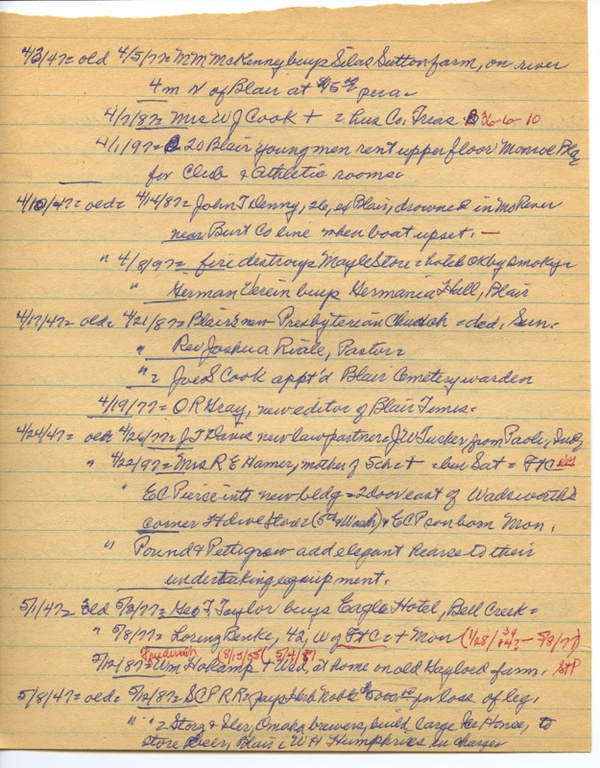 4/3/47= old 4/5/77= M M McKenny buys Silas Sutton farm, on river
4 m N of Blair at $15 00 per a-
4/7/87= Mrs W J Cook + = hus Co. Treas. 36-6-10
4/1/97= 20 Blair young men rent upper floor Monroe Bldg
for Club & athletic rooms.
4/10/47= old= 4/14/87= John T Denny, 26, ex Blair, drowned in Mo River
near Burt Co line when boat upset. —
" 4/8/97= fire destroys Mayle Store = hotel OK by smoky=
" German Verein buys Germania Hall, Blair
4/17/47= old= 4/21/87= Blair's new Presbyterian Church = ded. Sun.
" Rev Joshua Pastor=
" = Joe S Cook appt'd Blair Cemetery warden
4/19/77= O R Gray, new editor of Blair Times.
4/24/47= old 4/26/77= J T Davis new law partner= J W Tucker from Paoli, Ind
" 4/22/97= Mrs R E Hamer, mother of 5 ch + = bur Sat = FHC
" E C Pierce into new bldg = 2 door east of Wadsworth's
corner Hdwe Store (5th & Wash) & ECP son born Mon.
" Pound & Pettigrew add elegant hearse to their
undertaking equipment.
5/1/47= old 5/3/77= Geo F Taylor buys Eagle Hotel, Bell Creek=
" 5/8/77= Lorenz Benke, 42, W of FHC = + Mon (1/28/34 - 5/8/77)
Friedrich (8/15/55 (5/4/87
5/12/87= Wm Holkamp + Wed, at home on old Gaylord farm. StP
5/8/47= old= 5/12/87= SCP RR= pays Herb Noble $5000 00 for loss of leg,
" " = Storz & Iler, Omaha brewers, build large Ice House, to
store Beer, Blair = W H Humphries in charge